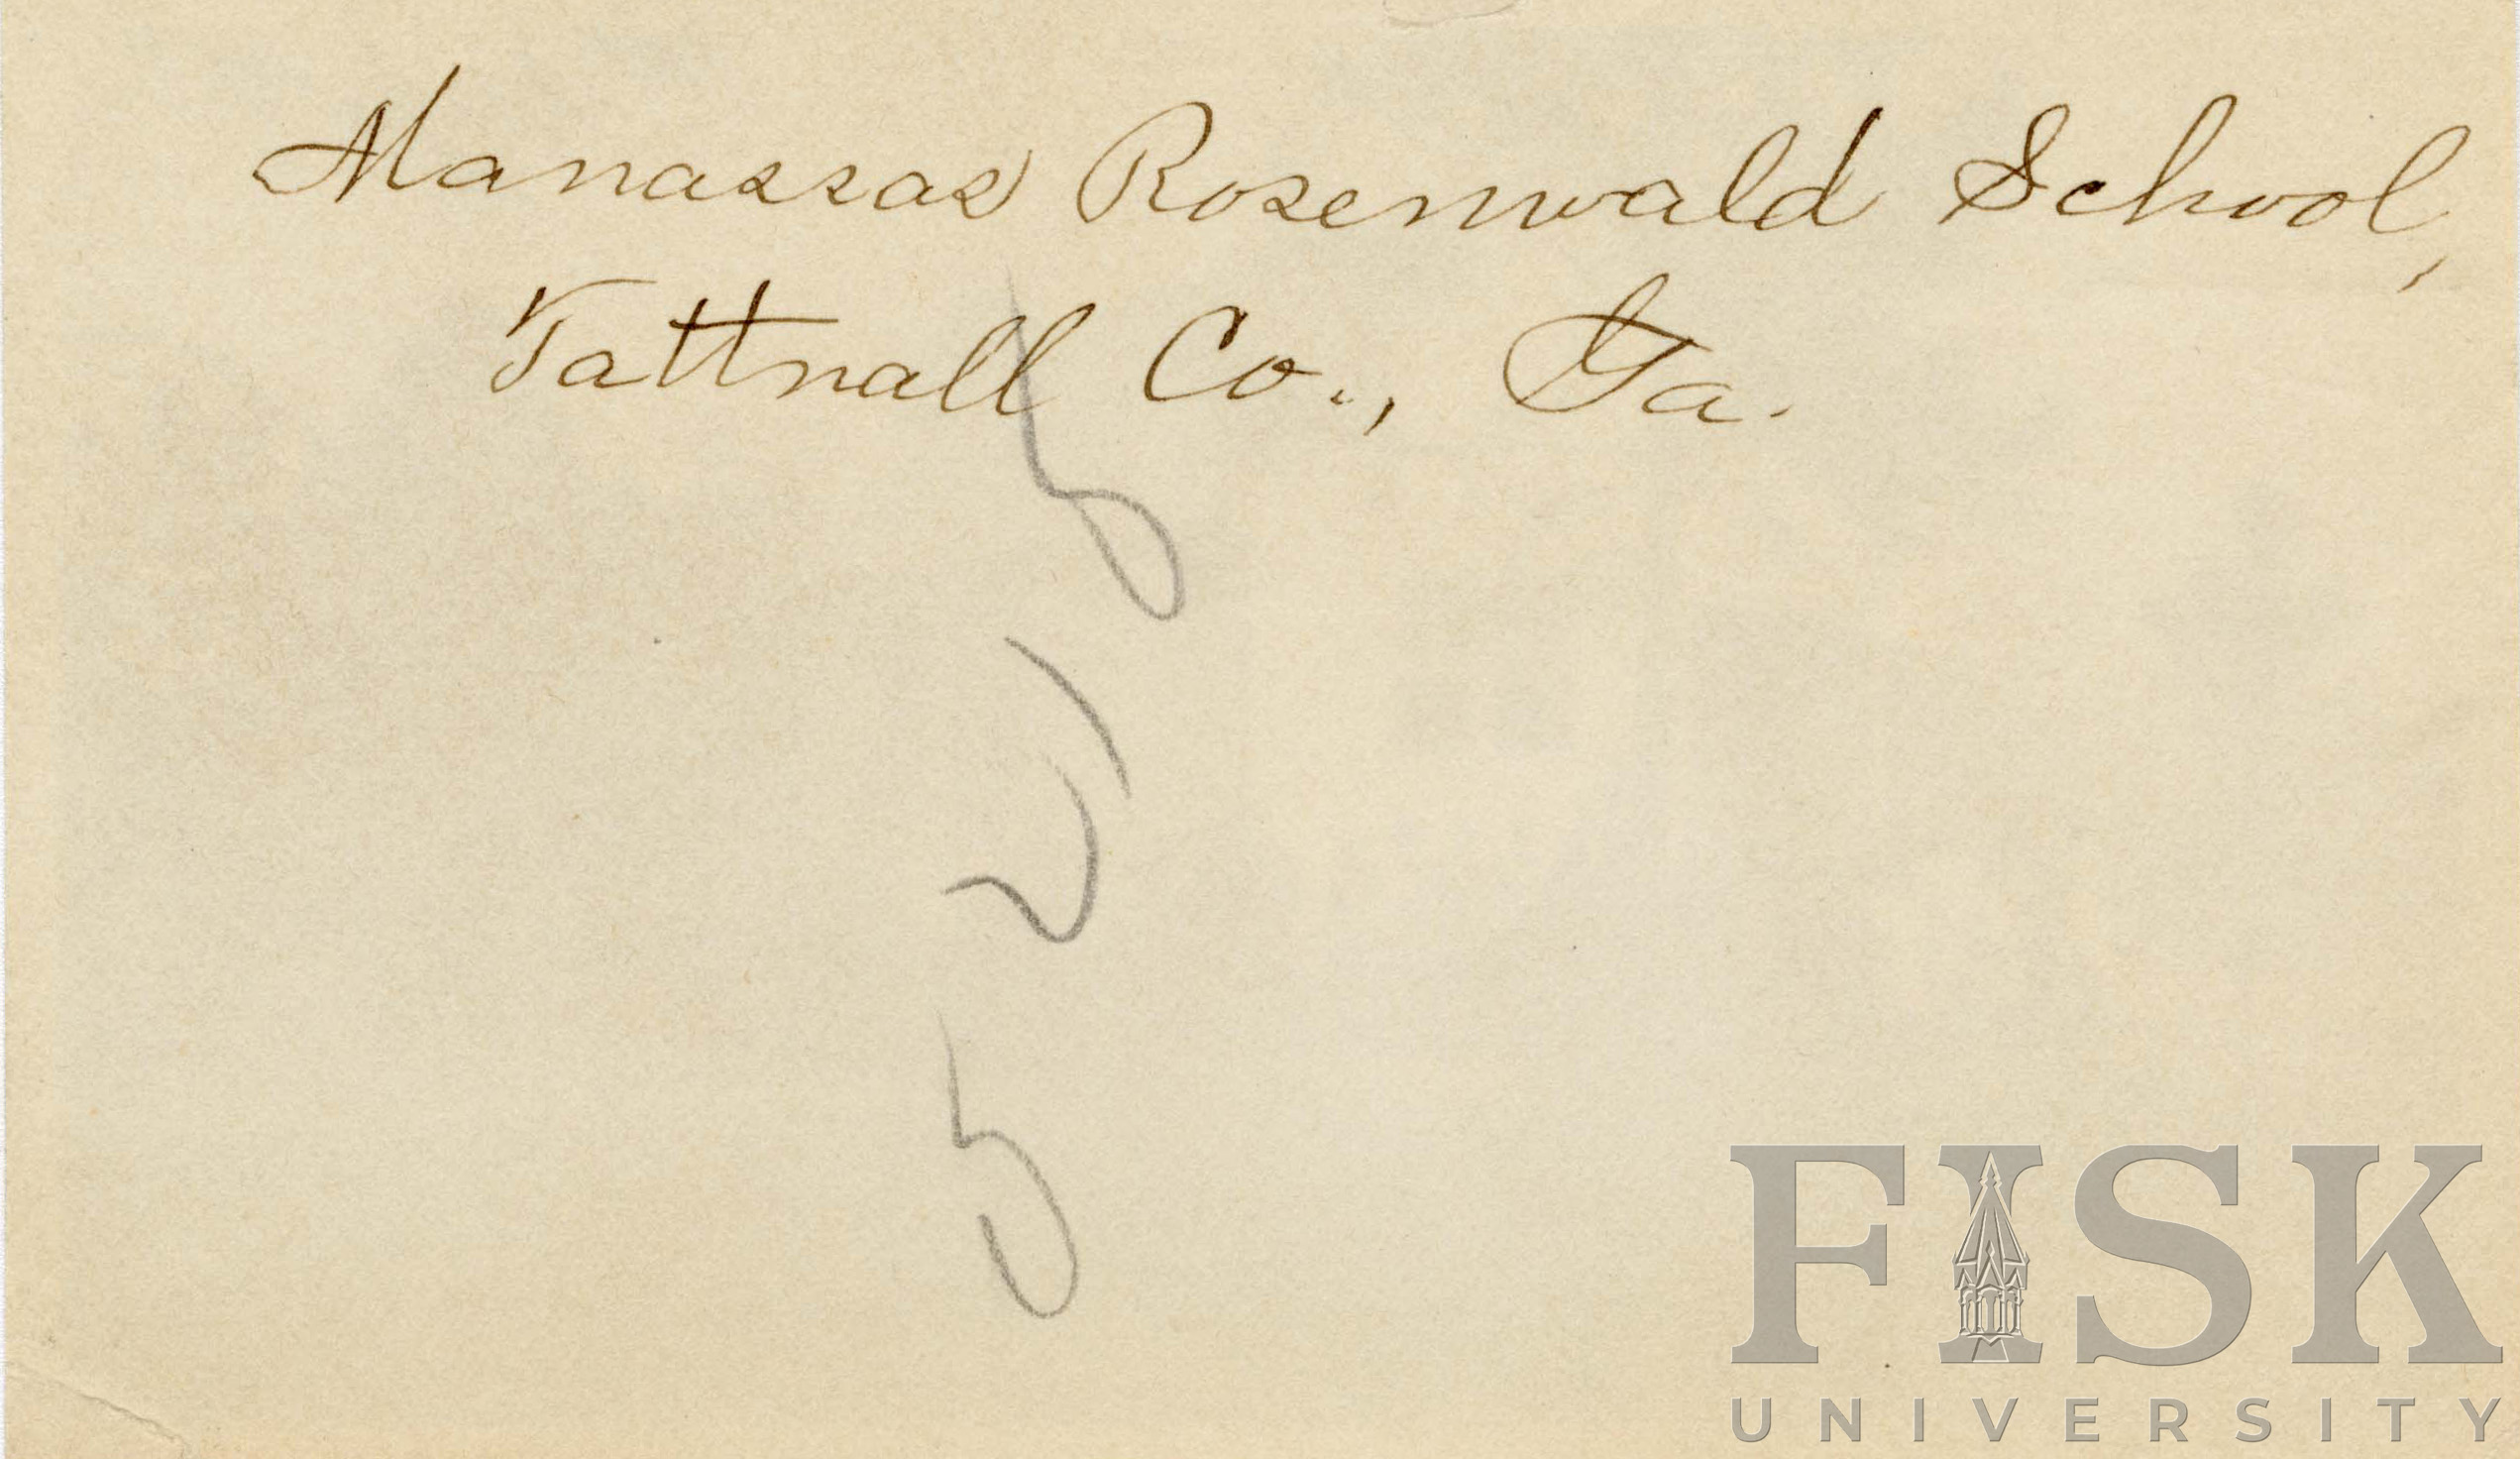 Manassas Rosenwald School,
Tattnall Co., Ga.
FISK
UNIVERSITY